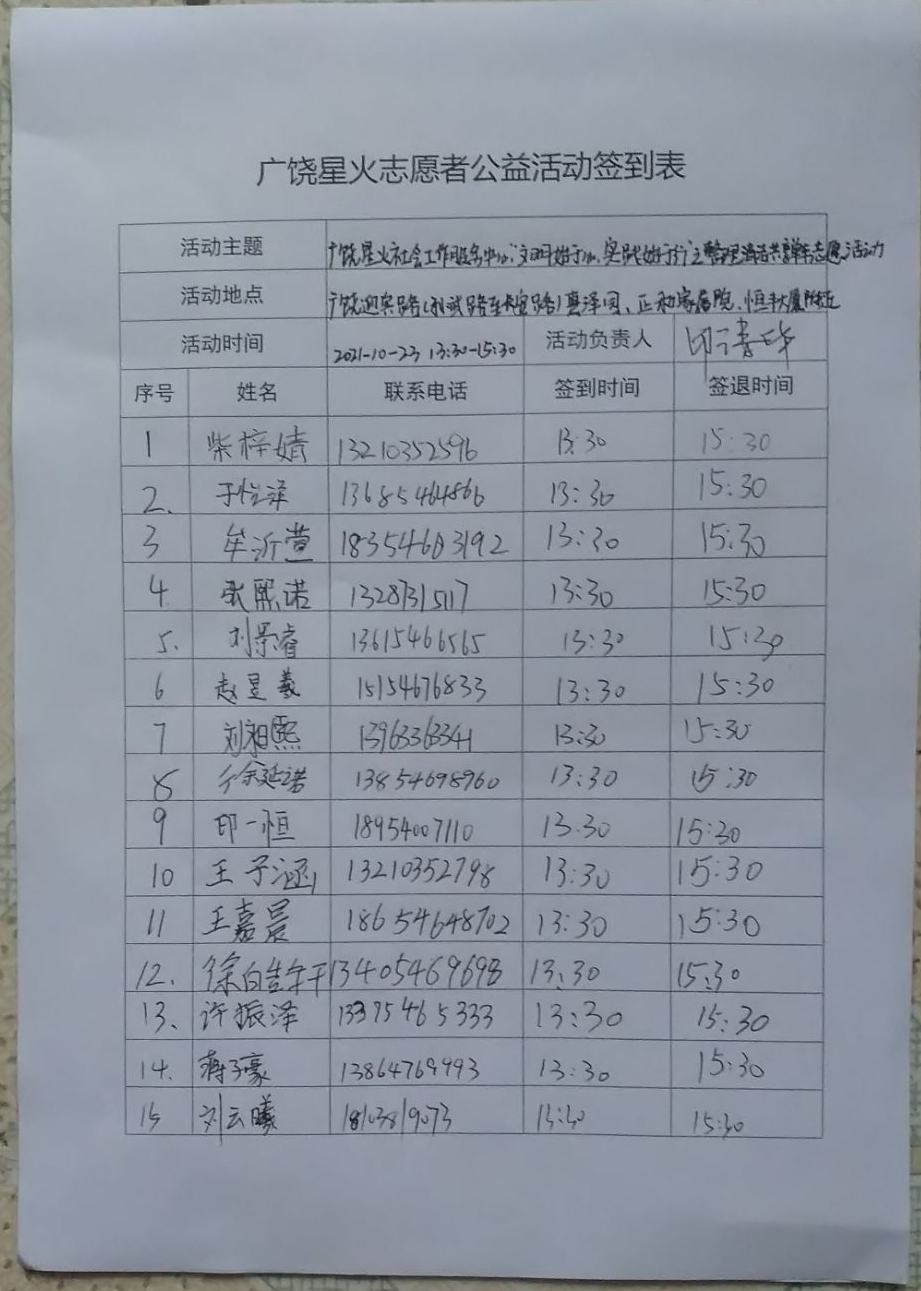 广饶星火志愿者公益活动签到表
活动主题 广饶星火社会工作服务中心"文明始于心,实践始于行"之整理清洁共享单车志愿活动
活动地点 广饶迎宾路(孙武路至长安路)惠泽园、正和家属院、恒丰大厦附近
活动时间 2021-10-23 13:30-15:30 活动负责人 印
序号 姓名 联系电话 签到时间 签退时间
1 柴梓婧 13210352596 13:30 15:30
2. 于恺泽 13685464866 13:30 15:30
3 牟沂萱 18354603192 13:30 15:30
4 张熙诺 13287315117 13:30 15:30
5. 刘景睿 13615466565 13:30 15:30
6 赵昱羲 15154676833 13:30 15:30
7 刘相熙 13963363341 13:30 15:30
8 徐延诺 13854698960 13:30 15:30
9 印一恒 18954007110 13:30 15:30
10 王子涵 13210352798 13:30 15:30
11 王嘉晨 18654648702 13:30 15:30
12. 徐 13405469698 13:30 15:30
13、 许振泽 13395465333 13:30 15:30
14. 蒋子豪 13864769993 13:30 15:30
15 刘云曦 18103819073 13:30 15:30